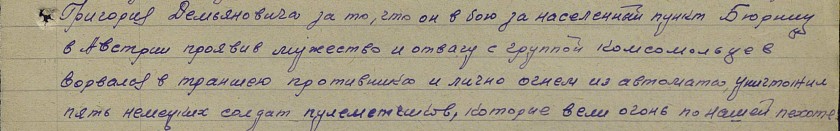 Григория Демьяновича за то, что он в бою за населенный пункт Бюрниц
в Австрии проявив мужество и отвагу с группой комсомольцев
ворвался в траншею противника и лично огнем из автомата уничтожил
пять немецких солдат пулеметчиков, которые вели огонь по нашей пехоте